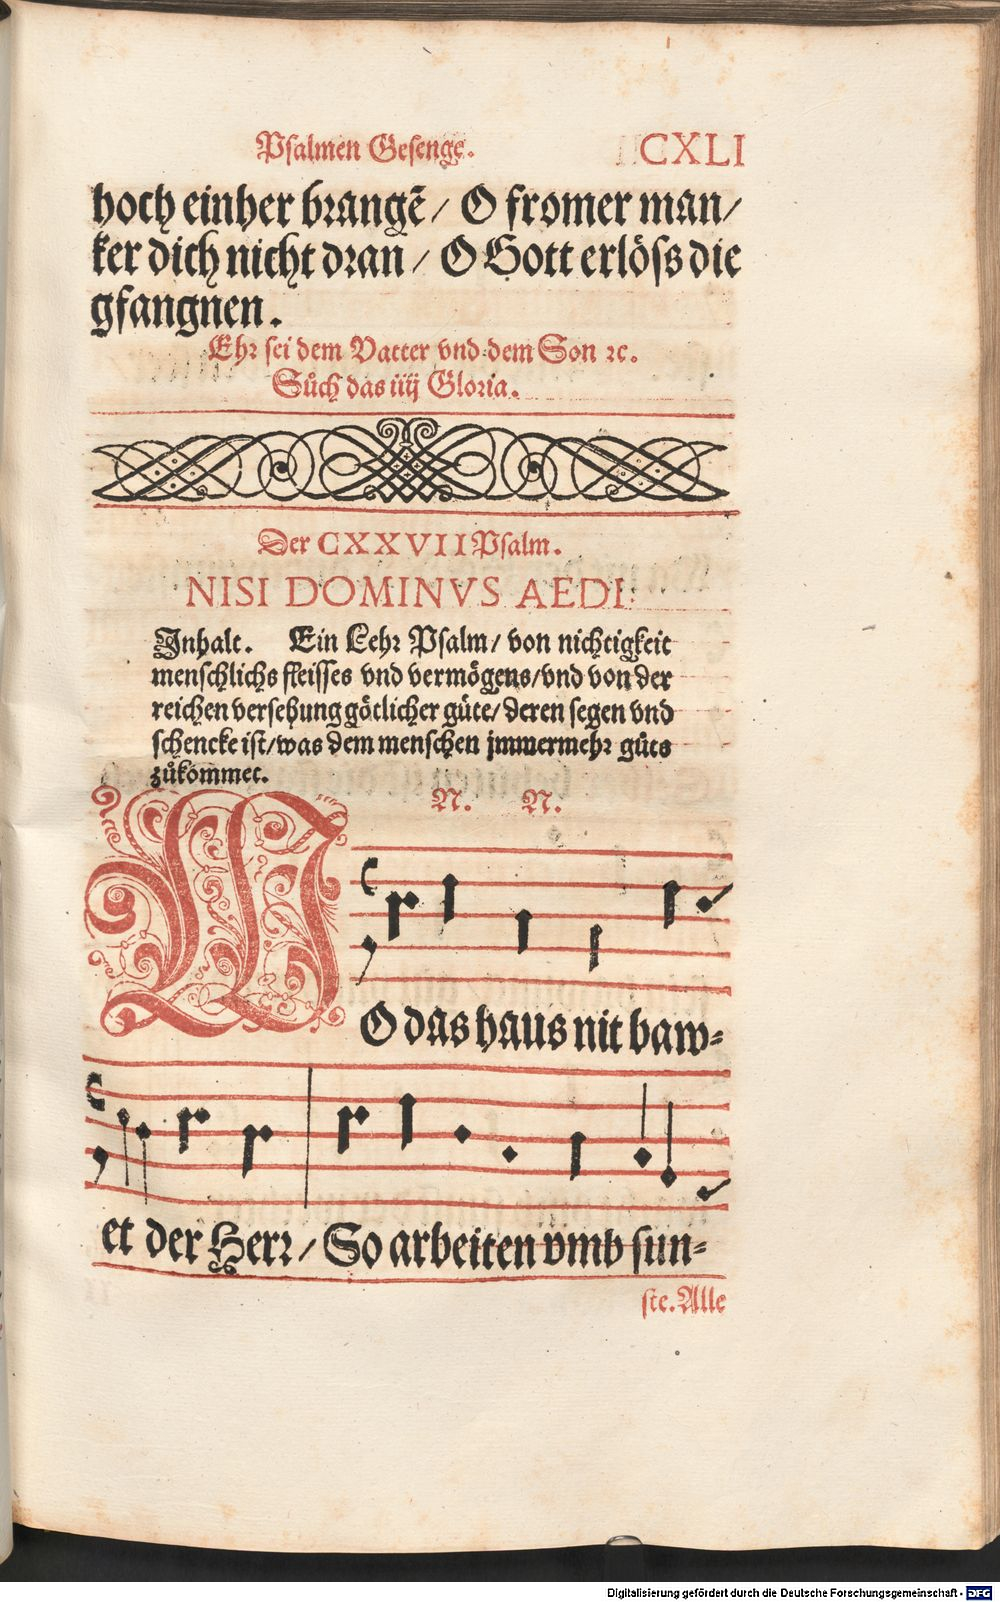 Psalmen Gesenge. CXLI
hoch einher brangẽ / O fromer man /
ker dich nicht dran / O Gott erlöss die
gfangnen.
Ehr sei dem Vatter vnd dem Son ꝛc.
Sůch das iiij Gloria.
Der CXXVII Psalm.
NISI DOMINVS AEDI:
Inhalt. Ein Lehr Psalm / von nichtigkeit
menschlichs fleisses vnd vermögens / vnd von der
reichen versehung götlicher güte / deren segen vnd
schencke ist / was dem menschen jmmermehr gůts
zůkommet.
N. N.
WO das haus nit baw⸗
et der Herr / So arbeiten vmb sun⸗
ste. Alle
Digitalisierung gefördert durch die Deutsche Forschungsgemeinschaft - DFG